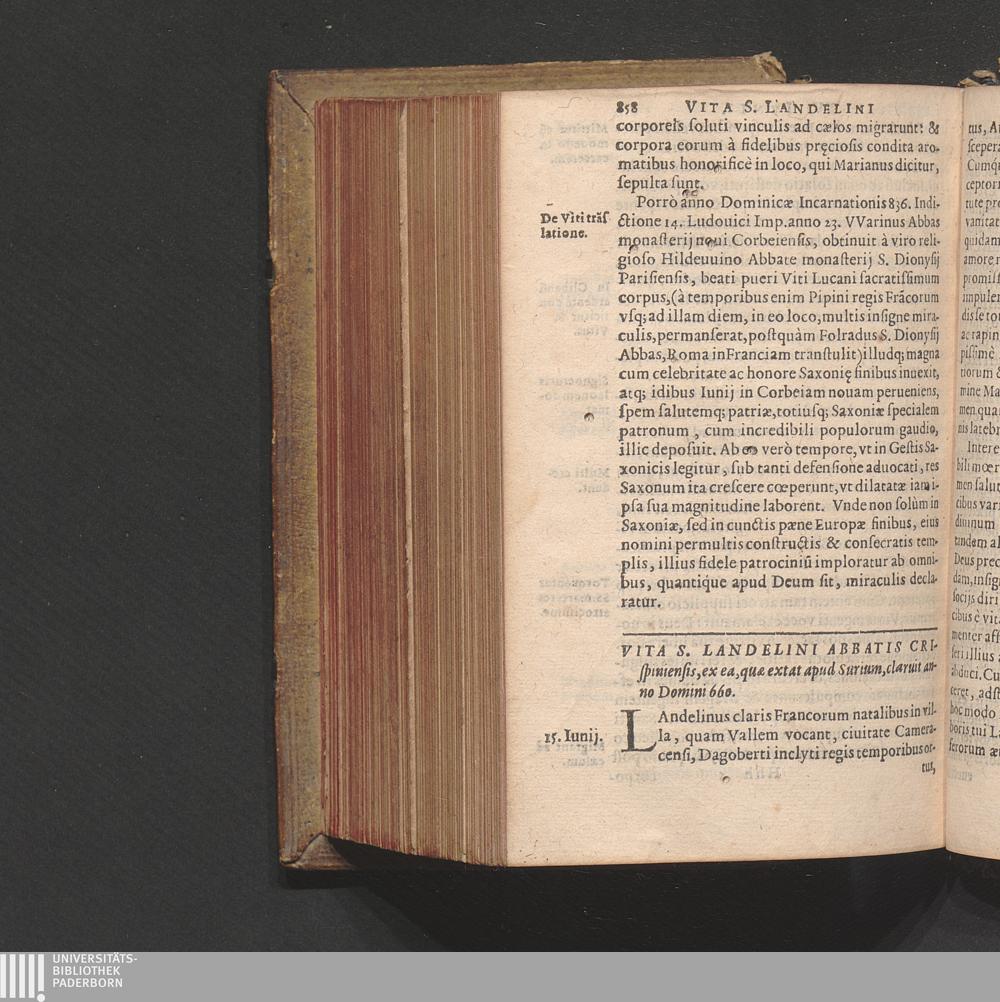 858 VITA S. LANDELINI
corporeis ſoluti vinculis ad cælos migrarunt: &
corpora eorum à fidelibus pręcioſis condita aro-
matibus honorificè in loco, qui Marianus dicitur,
ſepulta ſunt.
Porrò anno Dominicæ Incarnationis 836. Indi-
De Viti trāſ
latione.
ctione 14. Ludouici Imp. anno 23. VVarinus Abbas
monaſterij noui Corbeienſis, obtinuit à viro reli-
gioſo Hildeuuino Abbate monaſterij S. Dionyſij
Pariſienſis, beati pueri Viti Lucani ſacratiſſimum
corpus, (à temporibus enim Pipini regis Frācorum
vſq; ad illam diem, in eo loco, multis inſigne mira-
culis, permanſerat, poſtquàm Folradus S. Dionyſij
Abbas, Roma in Franciam tranſtulit) illudq; magna
cum celebritate ac honore Saxonię finibus inuexit,
atq; idibus Iunij in Corbeiam nouam perueniens,
ſpem ſalutemq; patriæ, totiuſq; Saxoniæ ſpecialem
patronum, cum incredibili populorum gaudio,
illic depoſuit. Ab eo verò tempore, vt in Geſtis Sa-
xonicis legitur, ſub tanti defenſione aduocati, res
Saxonum ita creſcere cœperunt, vt dilatatæ iam i-
pſa ſua magnitudine laborent. Vnde non ſolùm in
Saxoniæ, ſed in cunctis pæne Europæ finibus, eius
nomini permultis conſtructis & conſecratis tem-
plis, illius fidele patrociniū imploratur ab omni-
bus, quantiq́ue apud Deum ſit, miraculis decla-
ratur.
VITA S. LANDELINI ABBATIS CRI-
ſpinienſis, ex ea, quæ extat apud Surium, claruit an-
no Domini 660.
15. Iunij.
LAndelinus claris Francorum natalibus in vil-
la, quam Vallem vocant, ciuitate Camera-
cenſi, Dagoberti inclyti regis temporibus or-
tus,
tus, A
ſcepera
ceptor
tute pr
vanitat
quidam
amore
promiſſ
impuler
ac rapin
tiorum
mine Ma
men qua
nis latebr
Intere
men ſalut
cibus var
tandem al
Deus prec
ſocijs diri
cibus è vit
menter aff
hoc modo
UNIVERSITÄTS-
BIBLIOTHEK
PADERBORN